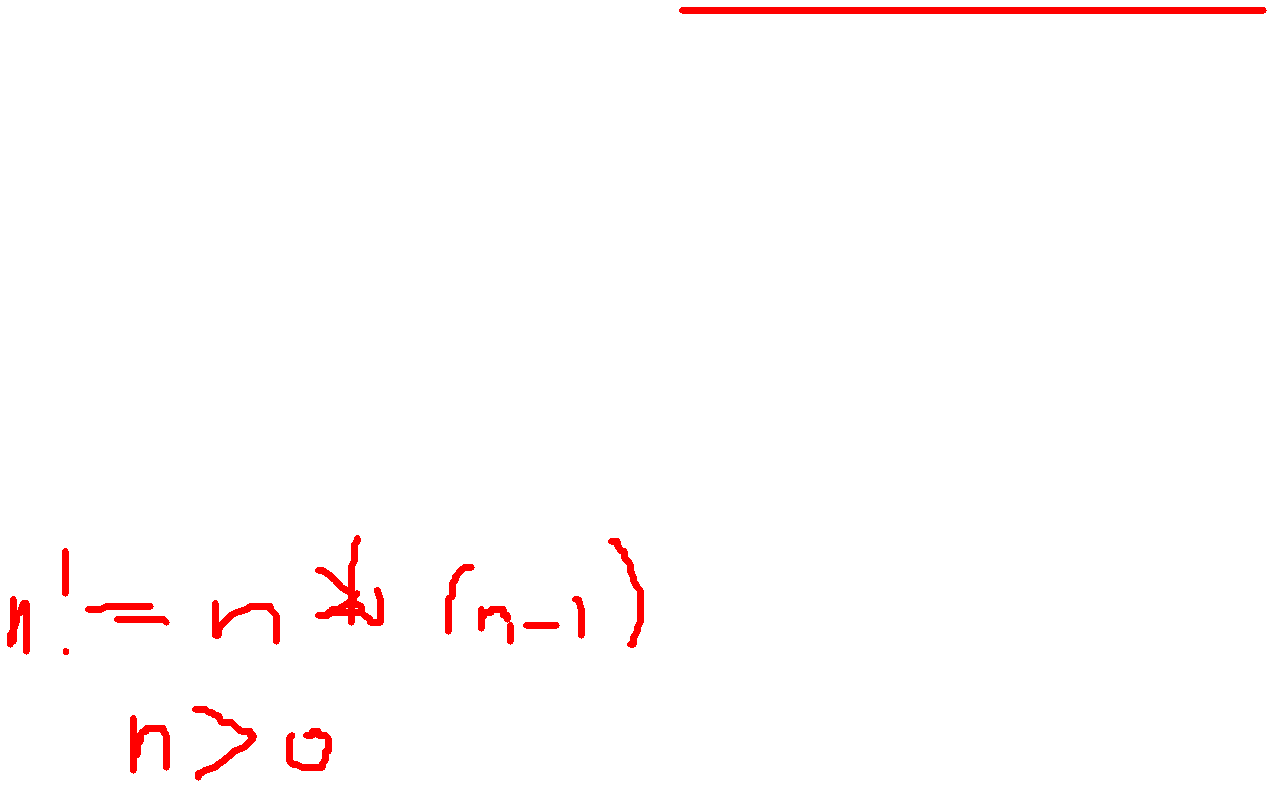 n! = n * (n-1)
n > 0